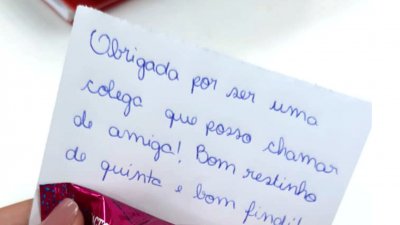 Obrigada por ser uma
colega que posso chamar
de amiga! Bom restinho
de quinta e bom findi!